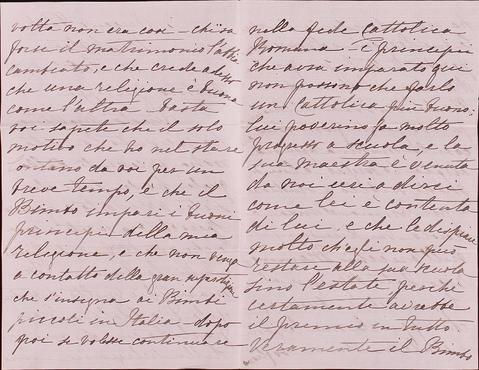 volta non era così — chi sa
forse il matrimonio l'abbia
cambiato, e che creda adesso
che una religione è buona
come l'altra. Basta
voi sapete che il solo
motivo che ho nel stare
lontano da voi per un
breve tempo, è che il
Bimbo impari i buoni
principî della mia
religione, e che non venga
a contatto della gran superstizione
che s'insegna ai Bimbi
piccoli in Italia dopo
poi se volesse continuare
nella fede Cattolica
Romana i principii
che avrà imparato qui
non possono che farlo
un Cattolico più buono.
Lui poverino fa molto
progresso a scuola, e la
sua maestra è venuta
da noi ieri a dirci
come lei è contenta
di lui, e che le dispiace
molto ch'egli non può
restare alla sua scuola
sino l'estate, perchè
certamente avrebbe
il premio in tutto.
Veramente il Bimbo